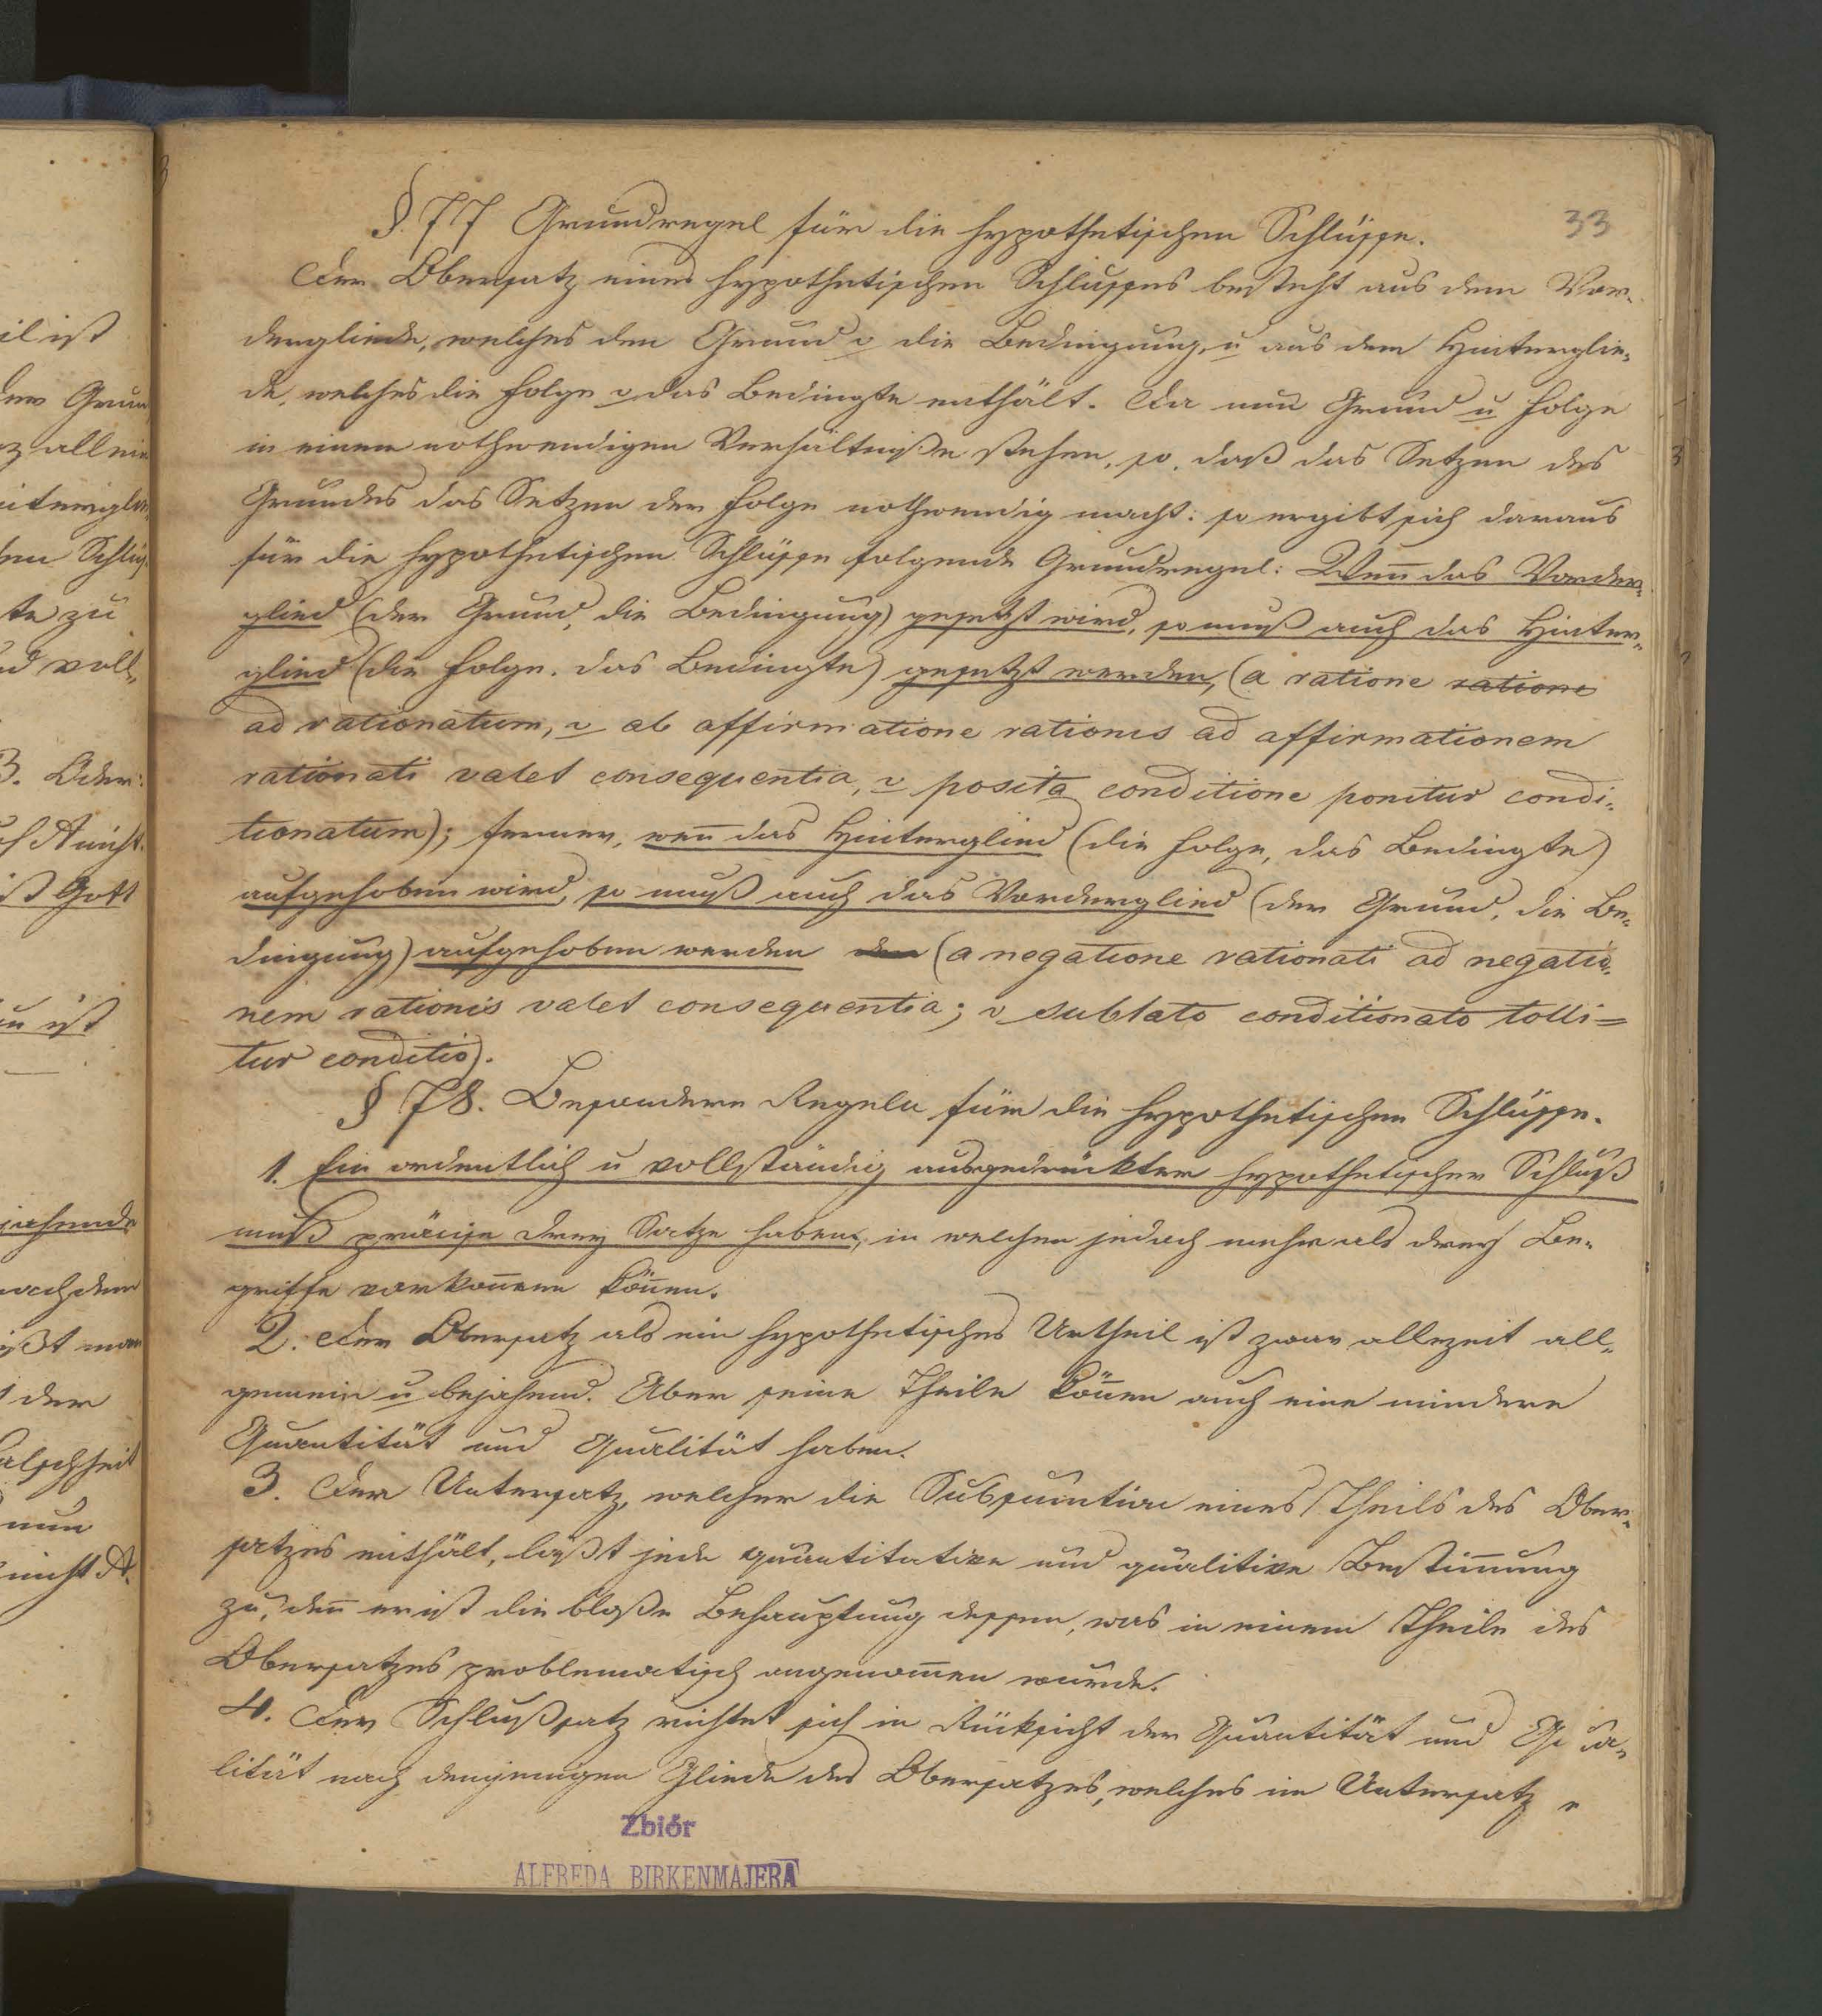 33
§. 77 Grundregel für die hypothetischen Schlüsse.
Der Obersatz eines hypothetischen Schlusses besteht aus dem Vor-
dergliede, welches den Grund o die Bedingung, u aus dem Hinterglie-
de, welches die Folge o das Bedingte enthält. Da nun Grund u Folge
in einem nothwendigen Verhältniße stehen, so, daß das Setzen des
Grundes das Setzen der Folge nothwendig macht: so ergibt sich daraus
für die hypothetischen Schlüsse folgende Grundregel: Weñ das Vorder-
glied (der Grund, die Bedingung) gesetzt wird, so muß auch das Hinter-
glied (die Folge, das Bedingte) gesetzt werden, (a ratione ratione
ad rationatum, o ab affirmatione rationis ad affirmationem
rationati valet consequentia, o posita conditione ponitur condi-
tionatum); ferner, weñ das Hinterglied (die Folge, das Bedingte)
aufgehoben wird, so muß auch das Vorderglied (der Grund, die Be-
dingung) aufgehoben werden den (a negatione rationati ad negatio-
nem rationis valet consequentia; o sublato conditionato tolli=
tur conditio).
§ 78. Besondere Regeln für die hypothetischen Schlüsse.
1. Ein ordentlich u vollständig ausgedrückter hypothetischer Schluß
muß präcise drey Satze haben, in welchen jedoch mehr als drey Be-
griffe vorkom̄en köñen.
2. Der Obersatz als ein hypothetisches Urtheil ist zwar allezeit all-
gemein u bejahend. Aber seine Theile köñen auch eine mindere
Quantität und Qualität haben.
3. Der Untersatz, welcher die Subsumtion eines Theils des Ober-
satzes enthält, läßt jede quantitative und qualitive Bestim̄ung
zu, deñ er ist die bloße Behauptung dessen, was in einem Theile des
Obersatzes problematisch angenom̄en wurde.
4. Der Schlußsatz richtet sich in Rüksicht der Quantität und Qua-
lität nach demjenigen Gliede des Obersatzes, welches im Untersatz
Zbiór
ALFREDA BIRKENMAJERA